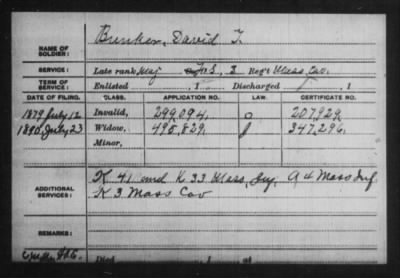 Bunker, David T.
NAME OF SOLDIER:
SERVICE: Late rank Maj F&S, 3 Reg't Mass. Cav.
TERM OF SERVICE: Enlisted , 1 Discharged , 1
DATE OF FILING. CLASS. APPLICATION NO. LAW. CERTIFICATE NO.
1879 July 12 Invalid, 299,094. 207,929.
1890, July 23 Widow, 495,829. 347,296.
Minor,
ADDITIONAL SERVICES:
K 41 and K 33 Mass. Inf. A 4 Mass Inf
K 3 Mass Cav
REMARKS:
Died , 1 , at